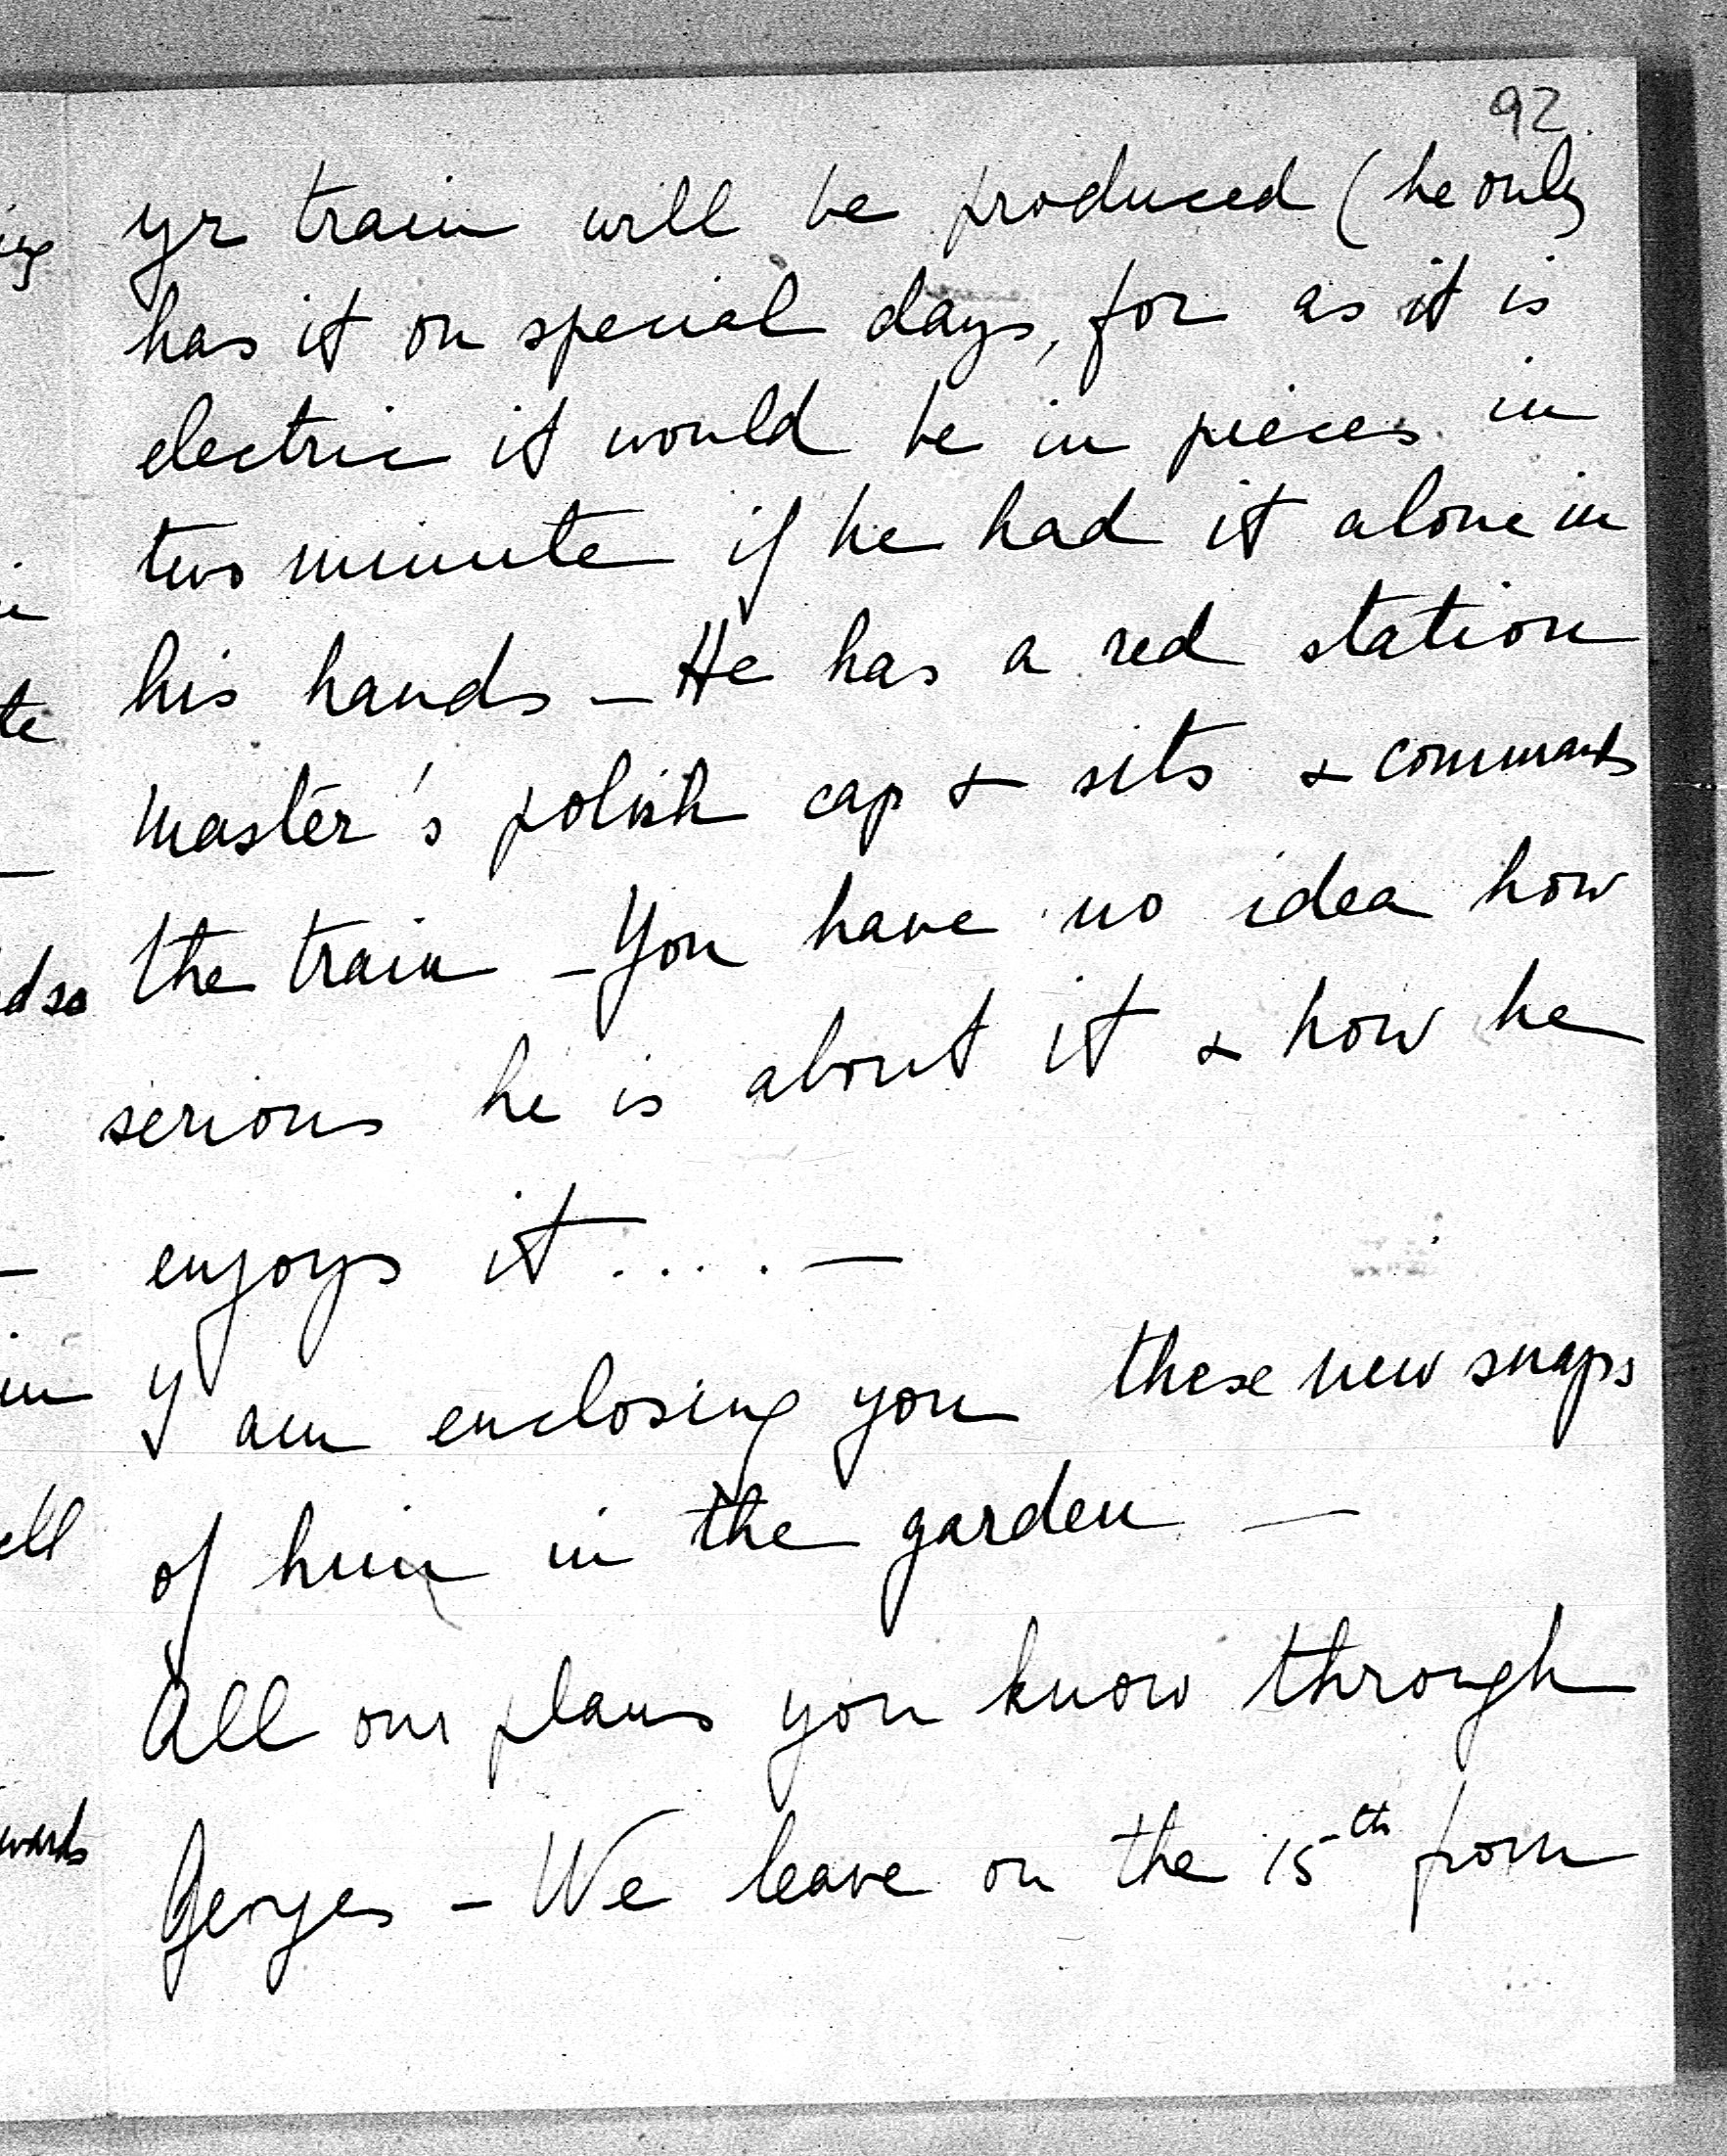 92.
yr train will be produced (he only
has it on special days, for as it is
electric it would be in pieces in
two minute if he had it alone in
his hands - He has a red station
master's polish cap & sits & commands
the train - You have no idea how
serious he is about it & how he
enjoys it..... -
I am enclosing you these new snaps
of him in the garden -
All our plans you know through
Georges - We leave on the 15th from